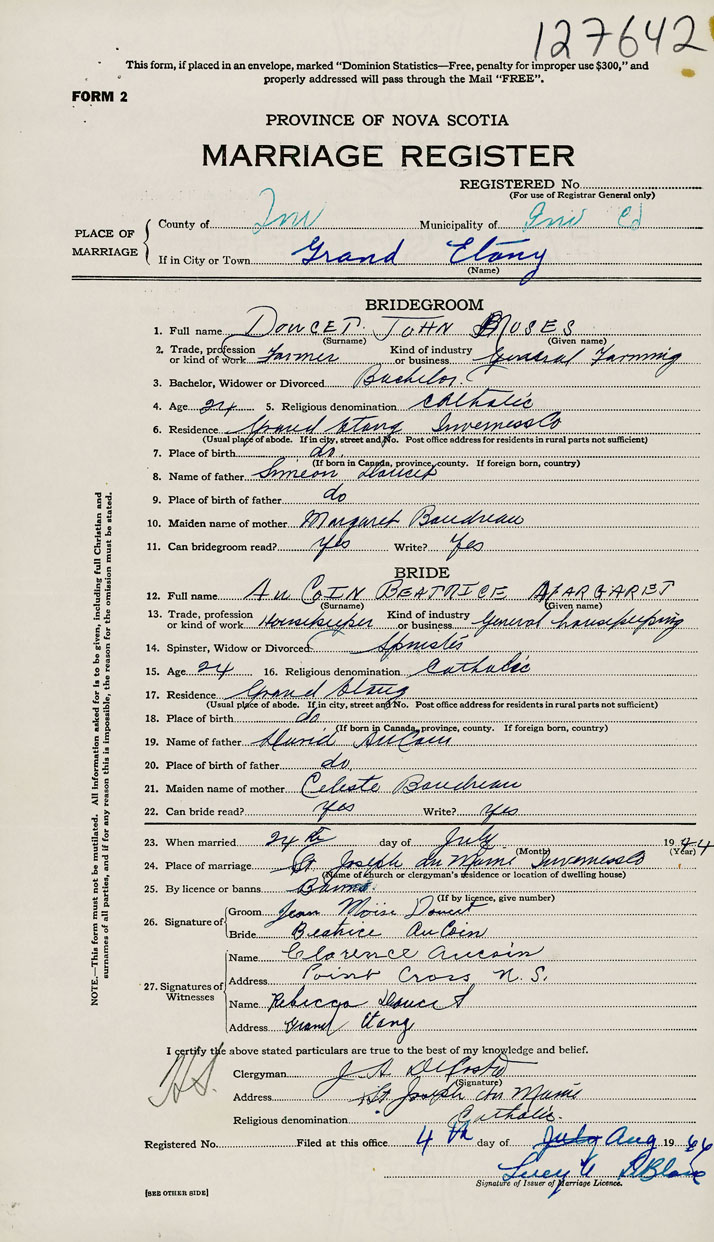 127642
This form, if placed in an envelope, marked "Dominion Statistics—Free, penalty for improper use $300," and
properly addressed will pass through the Mail "FREE".
FORM 2
PROVINCE OF NOVA SCOTIA
MARRIAGE REGISTER
REGISTERED No.
(For use of Registrar General only)
PLACE OF MARRIAGE
County of Inv Municipality of Inv Co
If in City or Town Grand Etang
(Name)
BRIDEGROOM
1. Full name DOUCET JOHN MOSES
(Surname) (Given name)
2. Trade, profession or kind of work Farmer Kind of industry or business General Farming
3. Bachelor, Widower or Divorced Bachelor
4. Age 24 5. Religious denomination Catholic
6. Residence Grand Etang Inverness Co
(Usual place of abode. If in city, street and No. Post office address for residents in rural parts not sufficient)
7. Place of birth do
(If born in Canada, province, county. If foreign born, country)
8. Name of father Simeon Doucet
9. Place of birth of father do
10. Maiden name of mother Margaret Boudreau
11. Can bridegroom read? Yes Write? Yes
BRIDE
12. Full name AuCOIN BEATRICE MARGARET
(Surname) (Given name)
13. Trade, profession or kind of work Housekeeper Kind of industry or business General housekeeping
14. Spinster, Widow or Divorced Spinster
15. Age 24 16. Religious denomination Catholic
17. Residence Grand Etang
(Usual place of abode. If in city, street and No. Post office address for residents in rural parts not sufficient)
18. Place of birth do
(If born in Canada, province, county. If foreign born, country)
19. Name of father David AuCoin
20. Place of birth of father do
21. Maiden name of mother Celeste Boudreau
22. Can bride read? Yes Write? Yes
23. When married 24th day of July 1944
(Month) (Year)
24. Place of marriage St. Joseph du Moine Inverness Co
(Name of church or clergyman's residence or location of dwelling house)
25. By licence or banns Banns
(If by licence, give number)
26. Signature of
Groom Jean Moise Doucet
Bride Beatrice AuCoin
27. Signatures of Witnesses
Name Clarence Aucoin
Address Point Cross N.S.
Name Rebecca Doucet
Address Grand Etang
I certify the above stated particulars are true to the best of my knowledge and belief.
Clergyman J A DeCoste
(Signature)
Address St. Joseph du Moine
Religious denomination Catholic
Registered No. Filed at this office 4th day of July Aug 1944
Lucy A LeBlanc
Signature of Issuer of Marriage Licence.
[SEE OTHER SIDE]
NOTE.—This form must not be mutilated. All information asked for is to be given, including full Christian and
surnames of all parties, and if for any reason this is impossible, the reason for the omission must be stated.